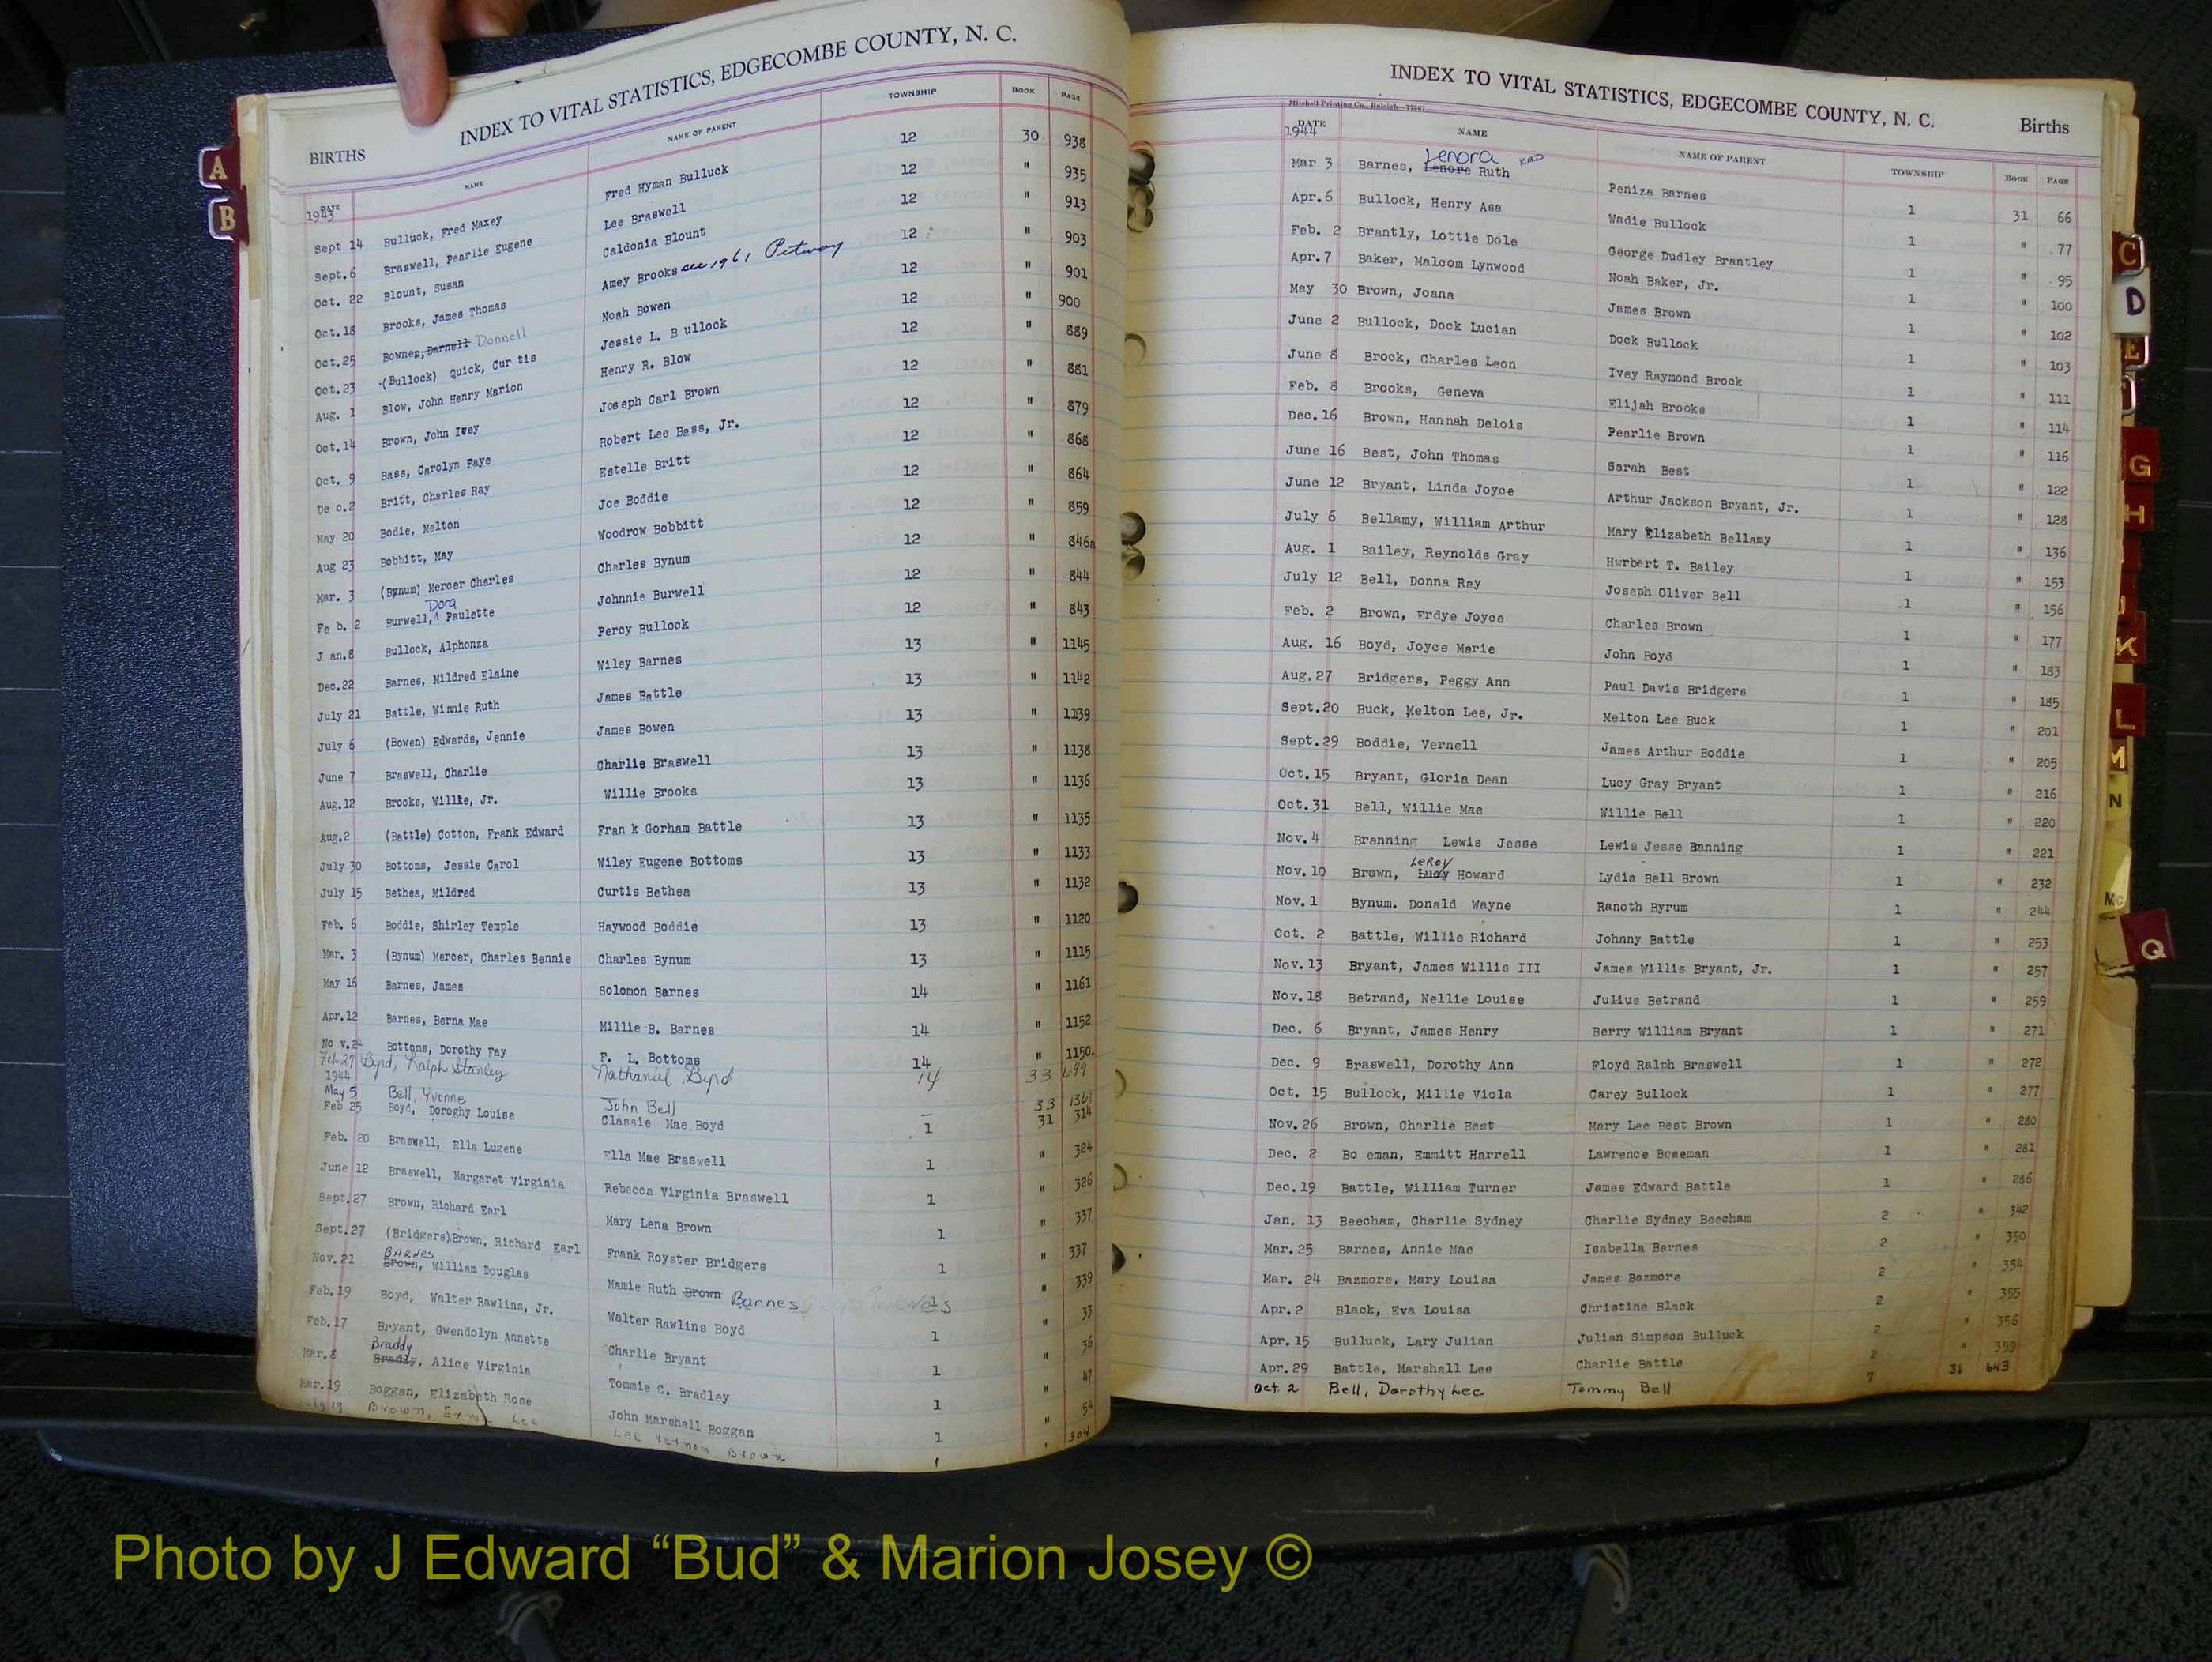 INDEX TO VITAL STATISTICS, EDGECOMBE COUNTY, N. C.
BIRTHS
DATE NAME NAME OF PARENT TOWNSHIP BOOK PAGE
1943
Sept 14 Bulluck, Fred Maxey Fred Hyman Bulluck 12 30 938
Sept. 6 Braswell, Pearlie Eugene Lee Braswell 12 " 935
Oct. 22 Blount, Susan Caldonia Blount 12 " 913
Oct. 18 Brooks, James Thomas Amey Brooks see 1961 Pitway 12 " 903
Oct. 25 Bownen, Darnell Donnell Noah Bowen 12 " 901
Oct. 23 (Bullock) Quick, Cur tis Jessie L. B ullock 12 " 900
Aug. 1 Blow, John Henry Marion Henry R. Blow 12 " 889
Oct. 14 Brown, John Ivey Joseph Carl Brown 12 " 881
Oct. 9 Bass, Carolyn Faye Robert Lee Bass, Jr. 12 " 879
De c. 2 Britt, Charles Ray Estelle Britt 12 " 868
May 20 Bodie, Melton Joe Boddie 12 " 864
Aug 23 Bobbitt, May Woodrow Bobbitt 12 " 859
Mar. 3 (Bynum) Mercer Charles Charles Bynum 12 " 846a
Fe b. 2 Burwell, Dora Paulette Johnnie Burwell 12 " 844
J an. 8 Bullock, Alphonza Percy Bullock 12 " 843
Dec. 22 Barnes, Mildred Elaine Wiley Barnes 13 " 1145
July 21 Battle, Winnie Ruth James Battle 13 " 1142
July 6 (Bowen) Edwards, Jennie James Bowen 13 " 1139
June 7 Braswell, Charlie Charlie Braswell 13 " 1138
Aug. 12 Brooks, Willie, Jr. Willie Brooks 13 " 1136
Aug. 2 (Battle) Cotton, Frank Edward Fran k Gorham Battle 13 " 1135
July 30 Bottoms, Jessie Carol Wiley Eugene Bottoms 13 " 1133
July 15 Bethea, Mildred Curtis Bethea 13 " 1132
Feb. 6 Boddie, Shirley Temple Haywood Boddie 13 " 1120
Mar. 3 (Bynum) Mercer, Charles Bennie Charles Bynum 13 " 1115
May 16 Barnes, James Solomon Barnes 14 " 1161
Apr. 12 Barnes, Berna Mae Millie B. Barnes 14 " 1152
No v. 24 Bottoms, Dorothy Fay F. L. Bottoms 14 " 1150.
Feb 27 Byrd, Ralph Stanley Nathaniel Byrd 14 33 699
1944
May 5 Bell, Yvonne John Bell — 33 1361
Feb 25 Boyd, Doroghy Louise Classie Mae Boyd 1 31 314
Feb. 20 Braswell, Ella Lugene Ella Mae Braswell 1 " 324
June 12 Braswell, Margaret Virginia Rebecca Virginia Braswell 1 " 326
Sept. 27 Brown, Richard Earl Mary Lena Brown 1 " 337
Sept. 27 (Bridgers) Brown, Richard Earl Frank Royster Bridgers 1 " 337
Nov. 21 Brown, BARNES William Douglas Mamie Ruth Brown Barnes 1 " 339
Feb. 19 Boyd, Walter Rawlins, Jr. Walter Rawlins Boyd 1 " 33
Feb. 17 Bryant, Gwendolyn Annette Charlie Bryant 1 " 36
Mar. 8 Bradly, Braddy Alice Virginia Tommie C. Bradley 1 " 47
Mar. 19 Boggan, Elizabeth Rose John Marshall Boggan 1 " 54
Brown, Lee Lee Vernon Brown 1 " 304
INDEX TO VITAL STATISTICS, EDGECOMBE COUNTY, N. C.
Births
Mitchell Printing Co., Raleigh—77567
DATE NAME NAME OF PARENT TOWNSHIP BOOK PAGE
1944
Mar 3 Barnes, Lenore Lenora Ruth Peniza Barnes 1 31 66
Apr. 6 Bullock, Henry Asa Wadie Bullock 1 " 77
Feb. 2 Brantly, Lottie Dole George Dudley Brantley 1 " 95
Apr. 7 Baker, Malcom Lynwood Noah Baker, Jr. 1 " 100
May 30 Brown, Joana James Brown 1 " 102
June 2 Bullock, Dock Lucian Dock Bullock 1 " 103
June 8 Brock, Charles Leon Ivey Raymond Brock 1 " 111
Feb. 8 Brooks, Geneva Elijah Brooks 1 " 114
Dec. 16 Brown, Hannah Delois Pearlie Brown 1 " 116
June 16 Best, John Thomas Sarah Best 1 " 122
June 12 Bryant, Linda Joyce Arthur Jackson Bryant, Jr. 1 " 128
July 6 Bellamy, William Arthur Mary Elizabeth Bellamy 1 " 136
Aug. 1 Bailey, Reynolds Gray Herbert T. Bailey 1 " 153
July 12 Bell, Donna Ray Joseph Oliver Bell 1 " 156
Feb. 2 Brown, Erdye Joyce Charles Brown 1 " 177
Aug. 16 Boyd, Joyce Marie John Boyd 1 " 183
Aug. 27 Bridgers, Peggy Ann Paul Davis Bridgers 1 " 185
Sept. 20 Buck, Melton Lee, Jr. Melton Lee Buck 1 " 201
Sept. 29 Boddie, Vernell James Arthur Boddie 1 " 205
Oct. 15 Bryant, Gloria Dean Lucy Gray Bryant 1 " 216
Oct. 31 Bell, Willie Mae Willie Bell 1 " 220
Nov. 4 Branning Lewis Jesse Lewis Jesse Banning 1 " 221
Nov. 10 Brown, Lucy LeRoy Howard Lydia Bell Brown 1 " 232
Nov. 1 Bynum. Donald Wayne Ranoth Byrum 1 " 244
Oct. 2 Battle, Willie Richard Johnny Battle 1 " 253
Nov. 13 Bryant, James Willis III James Willis Bryant, Jr. 1 " 257
Nov. 18 Betrand, Nellie Louise Julius Betrand 1 " 259
Dec. 6 Bryant, James Henry Berry William Bryant 1 " 271
Dec. 9 Braswell, Dorothy Ann Floyd Ralph Braswell 1 " 272
Oct. 15 Bullock, Millie Viola Carey Bullock 1 " 277
Nov. 26 Brown, Charlie Best Mary Lee Best Brown 1 " 280
Dec. 2 Bo eman, Emmitt Harrell Lawrence Boseman 1 " 281
Dec. 19 Battle, William Turner James Edward Battle 1 " 286
Jan. 13 Beecham, Charlie Sydney Charlie Sydney Beecham 2 " 342
Mar. 25 Barnes, Annie Mae Isabella Barnes 2 " 350
Mar. 24 Bazmore, Mary Louisa James Bazmore 2 " 354
Apr. 2 Black, Eva Louisa Christine Black 2 " 355
Apr. 15 Bulluck, Lary Julian Julian Simpson Bulluck 2 " 356
Apr. 29 Battle, Marshall Lee Charlie Battle 2 " 359
Oct. 2 Bell, Dorothy Lee Tommy Bell 7 31 643
A
B
C
D
E
G
H
K
L
M
N
Mc
Q
Photo by J Edward “Bud” & Marion Josey ©